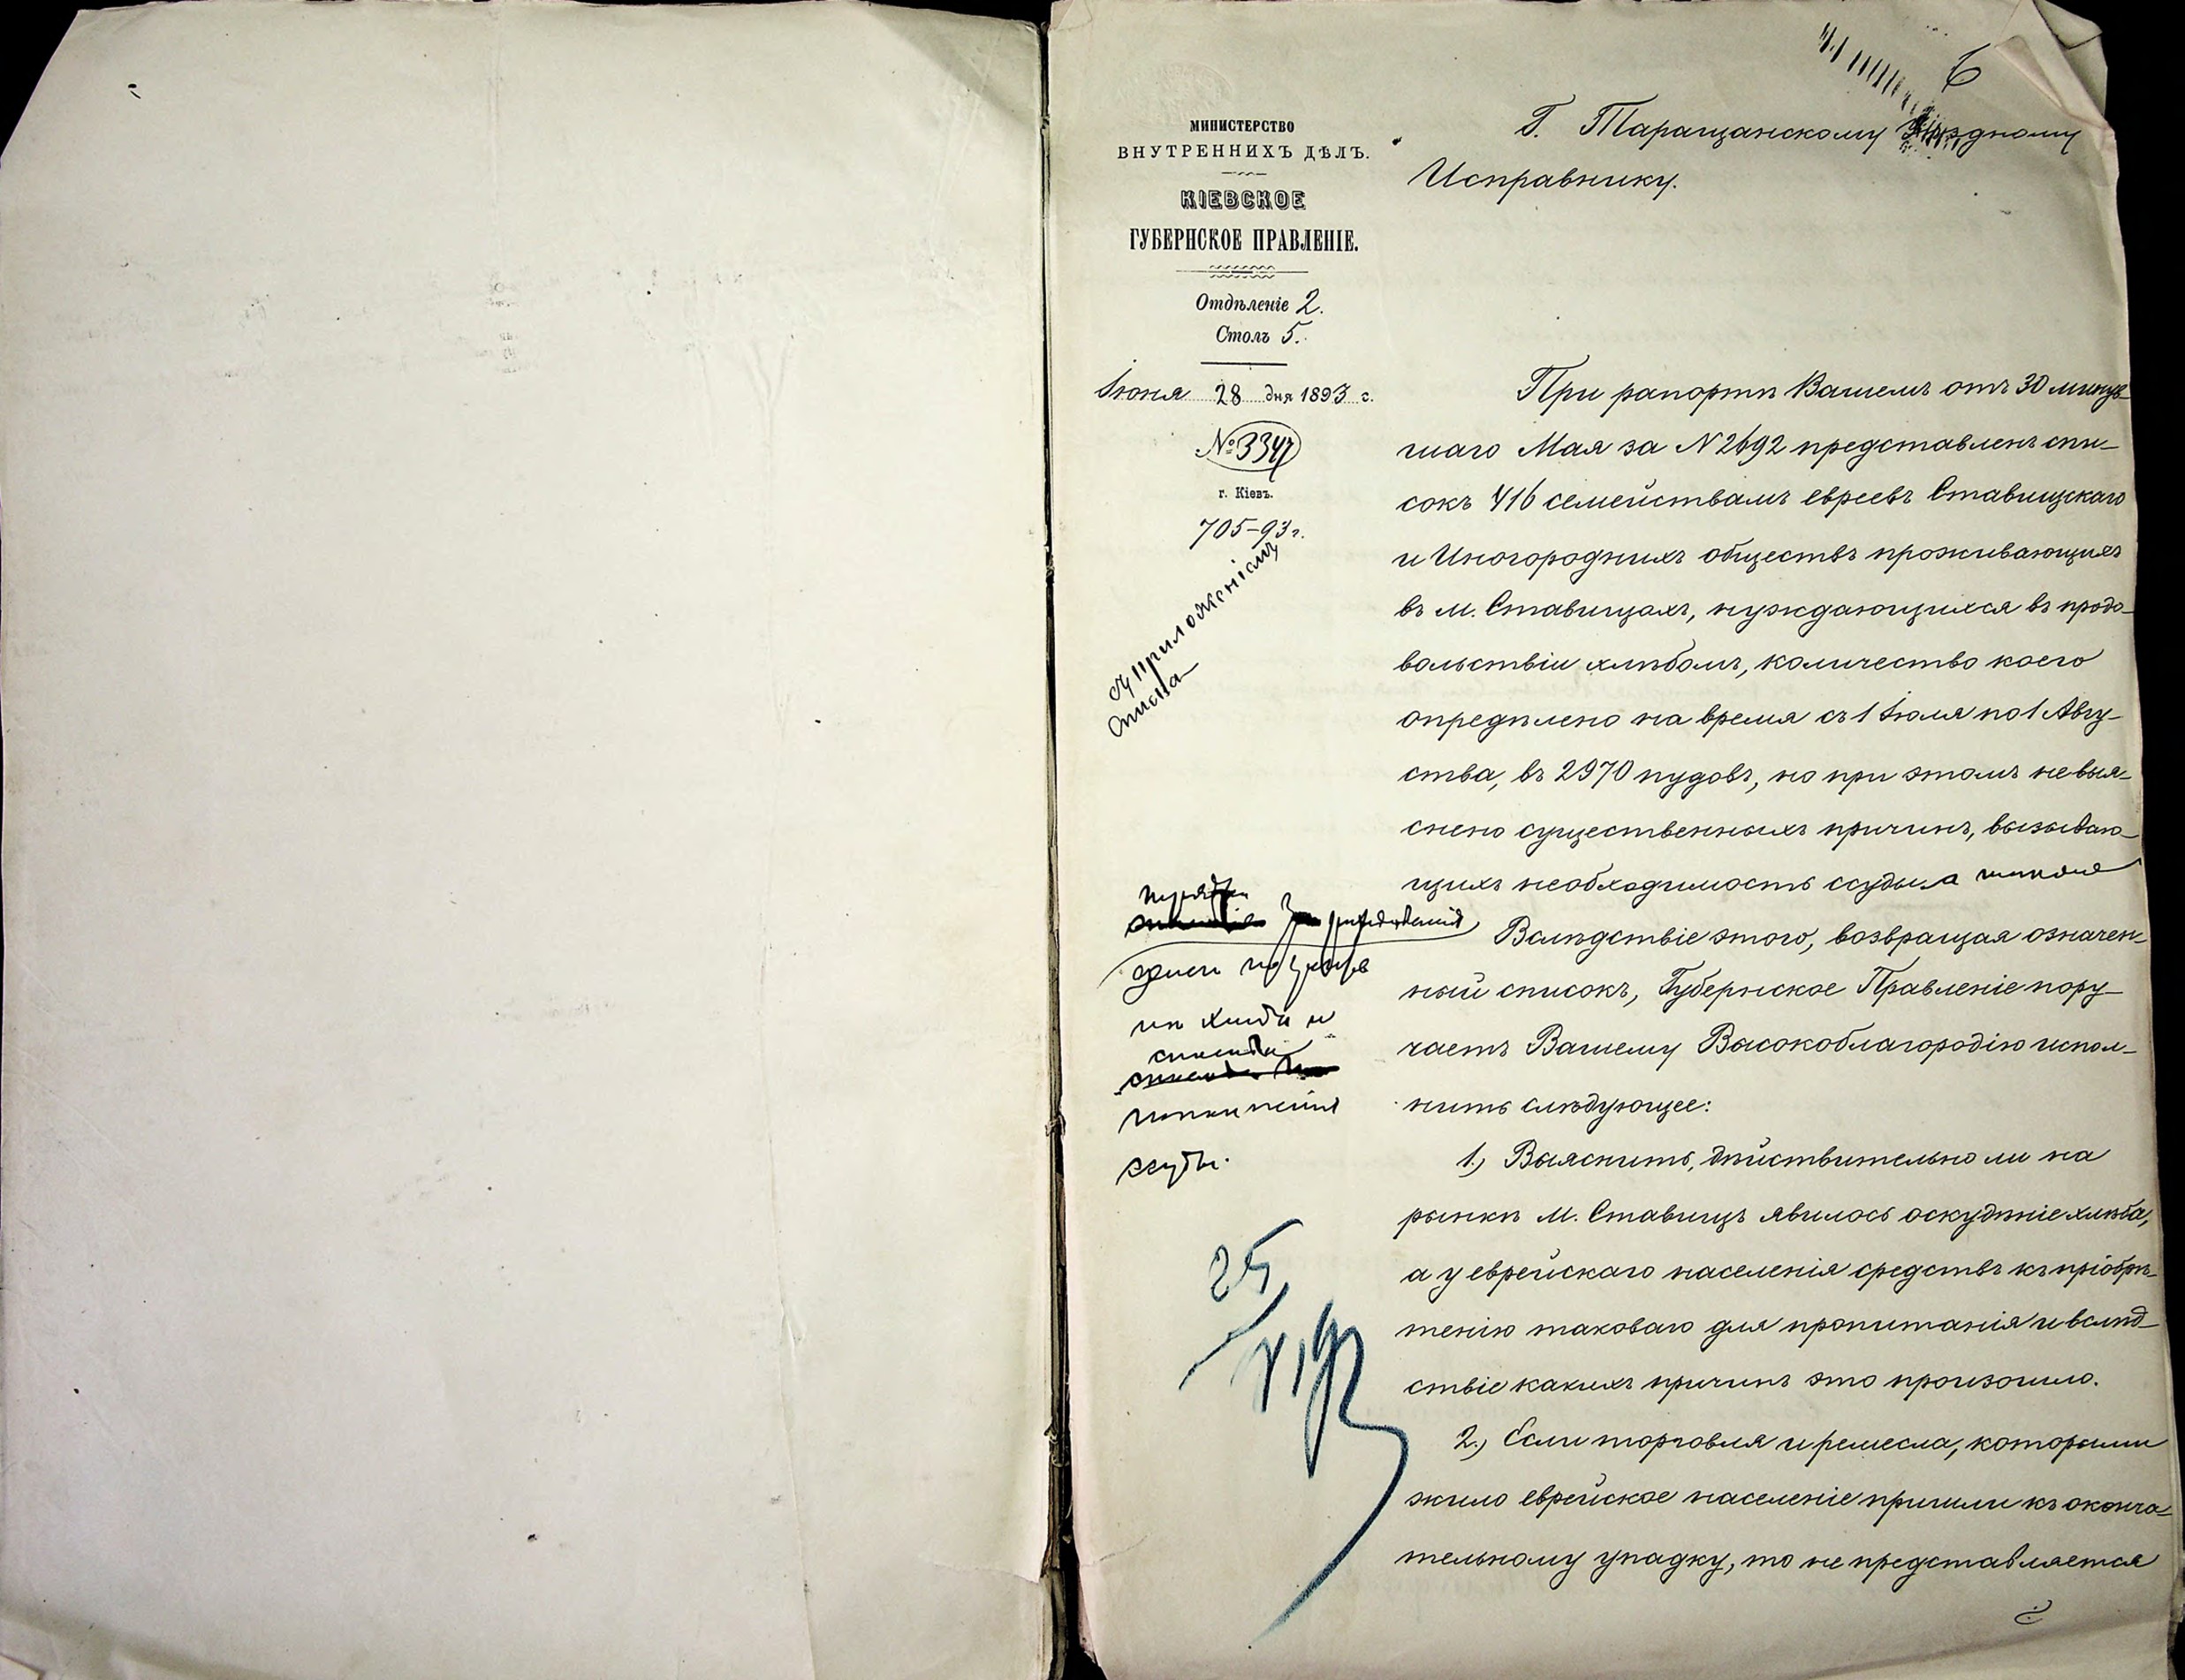 6
МИНИСТЕРСТВО
ВНУТРЕННИХЪ ДѢЛЪ.
КІЕВСКОЕ
ГУБЕРНСКОЕ ПРАВЛЕНІЕ.
Отдѣленіе 2.
Столъ 5.
Іюня 28 дня 1893 г.
г. Кіевъ.
705-93 г.
съ приложеніемъ
списка
ссуды.
25
Г. Таращанскому Уѣздному
Исправнику.
При рапортѣ Вашемъ отъ 30 минув-
шаго Мая за N 2692 представленъ спи-
сокъ 416 семействамъ евреевъ Ставищскаго
и Иногороднихъ обществъ проживающихъ
въ м. Ставищахъ, нуждающихся въ продо-
вольствіи хлѣбомъ, количество коего
опредѣлено на время съ 1 Іюля по 1 Авгу-
ства, въ 2970 пудовъ, но при этомъ не выя-
снено существенныхъ причинъ, вызываю-
щихъ необходимость ссуды, а
Вслѣдствіе этого, возвращая означен-
ный списокъ, Губернское Правленіе пору-
чаетъ Вашему Высокоблагородію испол-
нить слѣдующее:
1.) Выяснить, дѣйствительно ли на
рынкѣ м. Ставищъ явилось оскудѣніе хлѣба,
а у еврейскаго населенія средствъ къ пріобрѣ-
тенію таковаго для пропитанія и вслѣд-
ствіе какихъ причинъ это произошло.
2.) Если торговля и ремесла, которыми
жило еврейское населеніе пришли къ оконча-
тельному упадку, то не представляется